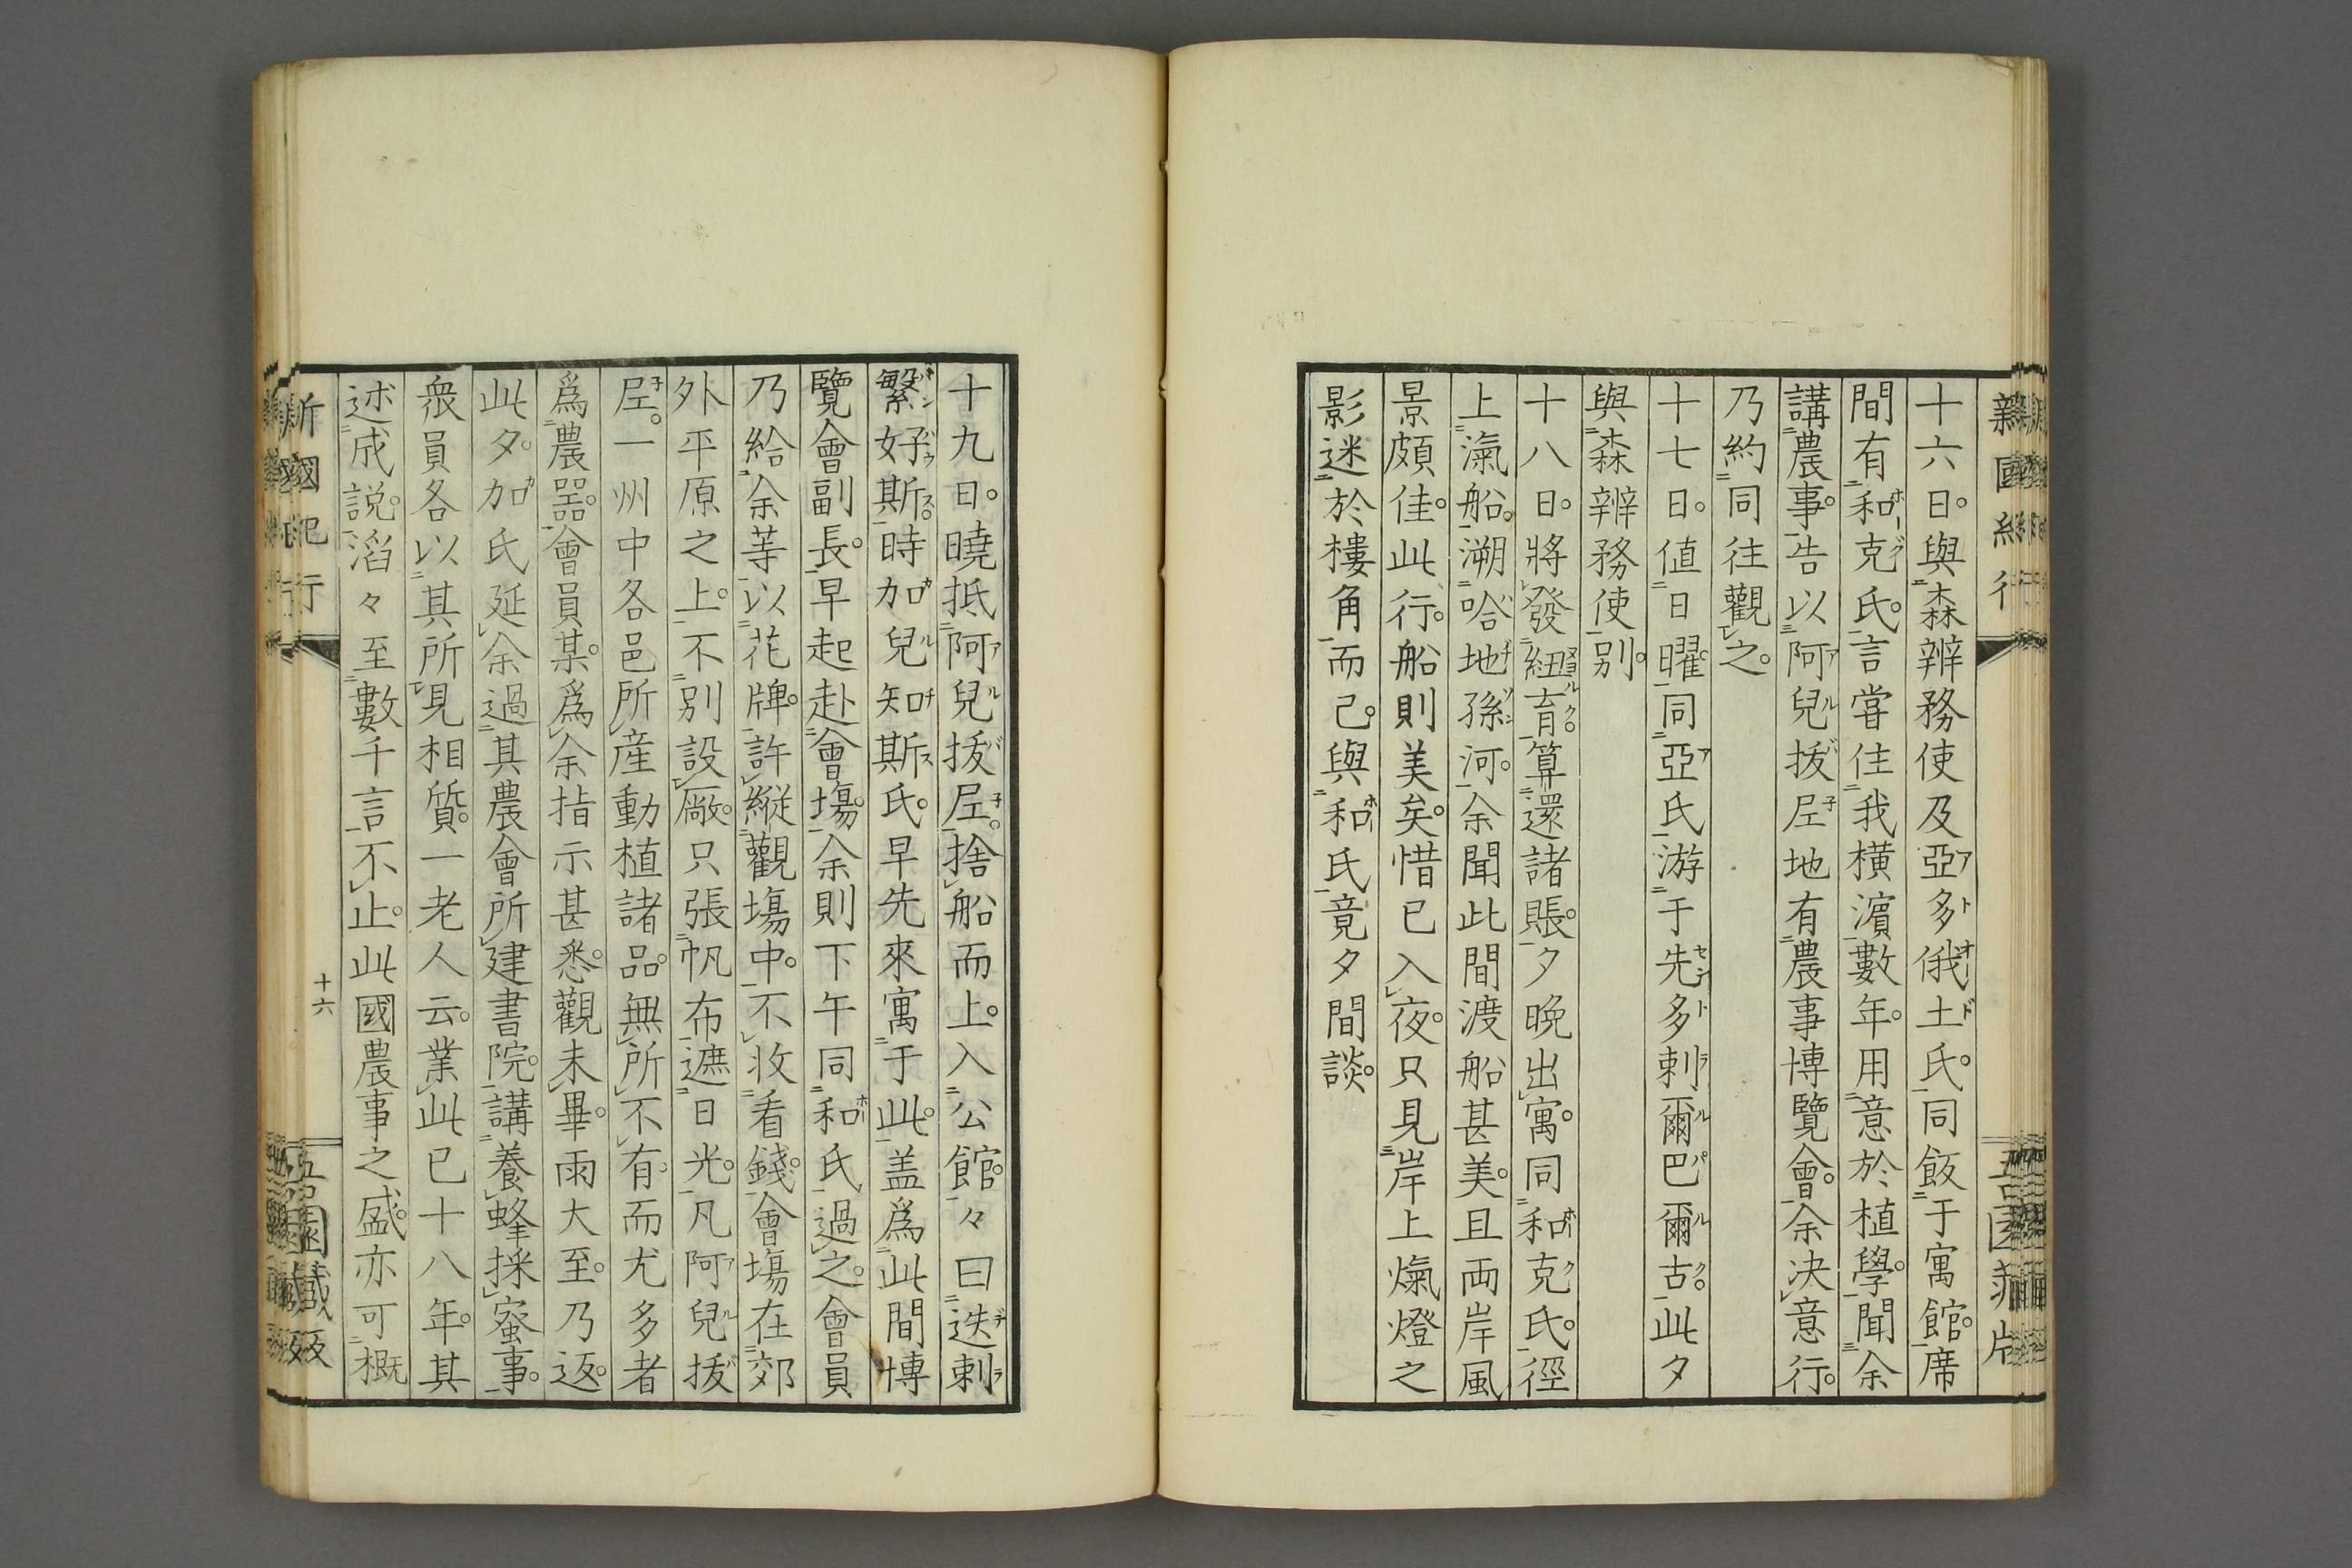 十六日。與森辨務使及亞多俄土氏。同飯于寓館。席
間有和克氏。言嘗住我橫濵數年。用意於植學。聞余
講農事。告以阿兒拔𡰱地有農事博覽會。余决意行。
乃約同往觀之。
十七日。値日曜。同亞氏游于先多剌爾巴爾古。此夕
與森辨務使別。
十八日。將發紐育。算還諸賬。夕晩出寓。同和克氏。徑
上滊船。溯哈地孫河。余聞此間渡船甚美。且両岸風
景頗佳。此行。船則美矣。惜已入夜。只見岸上燭燈之
影迷於樓角而己。與和氏竟夕間談。
十九日。曉抵阿兒拔𡰱。捨船而上。入公館。々曰迭剌
繁好斯。時加兒知斯氏。早先來寓于此。盖爲此間博
覽會副長。早起赴會塲。余則下午同和氏過之。會員
乃給余等以花牌。許縱觀塲中。不收看錢。會塲在郊
外平原之上。不別設厰。只張帆布遮日光。凡阿兒拔
𡰱。一州中各邑所産動植諸品。無所不有。而尤多者
爲農噐。會員某。爲余指示甚悉。觀未畢。雨大至。乃返。
此夕。加氏延余過其農會所建書院。講養蜂採蜜事。
衆員各以其所見相質。一老人云。業此已十八年。其
述成説。滔々至數千言不止。此國農事之盛。亦可概
新國紀行
十六